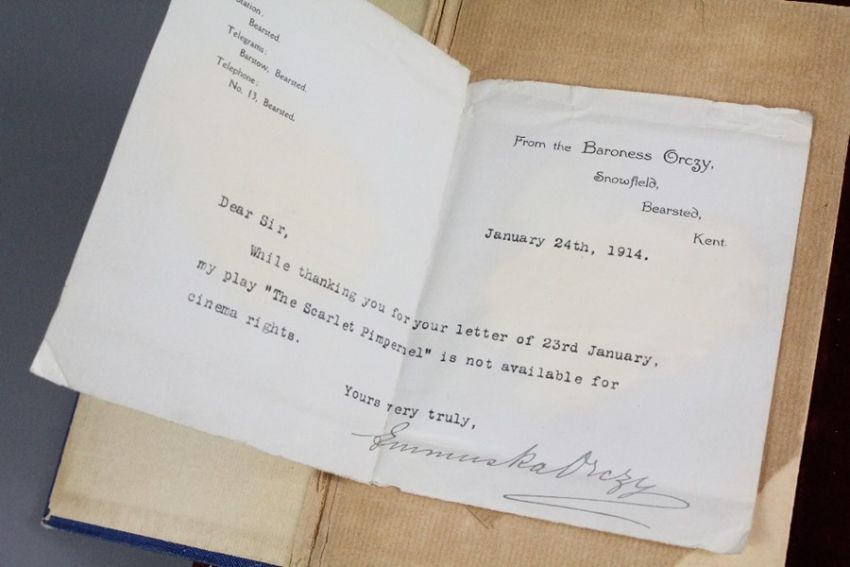 Station
Bearsted.
Telegrams:
Barstow, Bearsted.
Telephone:
No. 13, Bearsted.
From the Baroness Orczy,
Snowfield,
Bearsted,
Kent
January 24th, 1914.
Dear Sir,
While thanking you for your letter of 23rd January,
my play "The Scarlet Pimpernel" is not available for
cinema rights.
Yours very truly,
Emmuska Orczy